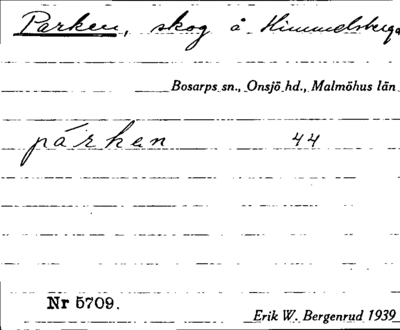 Parken, skog å Himmelsberga
Bosarps sn., Onsjö hd., Malmöhus län
párken 44
Nr 5709.
Erik W. Bergenrud 1939